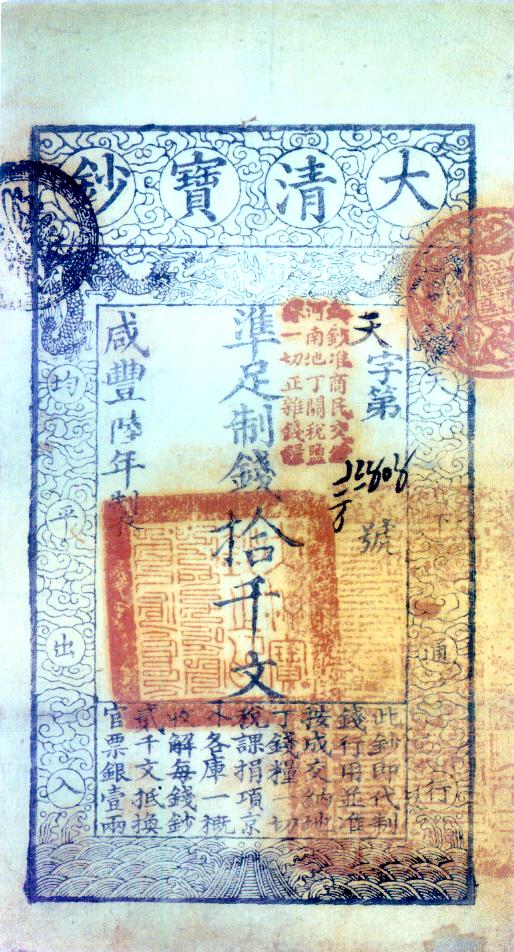 大清寶鈔
天下通行
天字第
號
鈔准商民交
河南地丁關稅鹽
一切正雜錢糧
準足制錢拾千文
咸豐陸年製
均平出入
此鈔即代制
錢行用並准
按成交納地
丁錢糧一切
稅課捐項京
外各庫一概
收解每錢鈔
貳千文抵換
官票銀壹兩